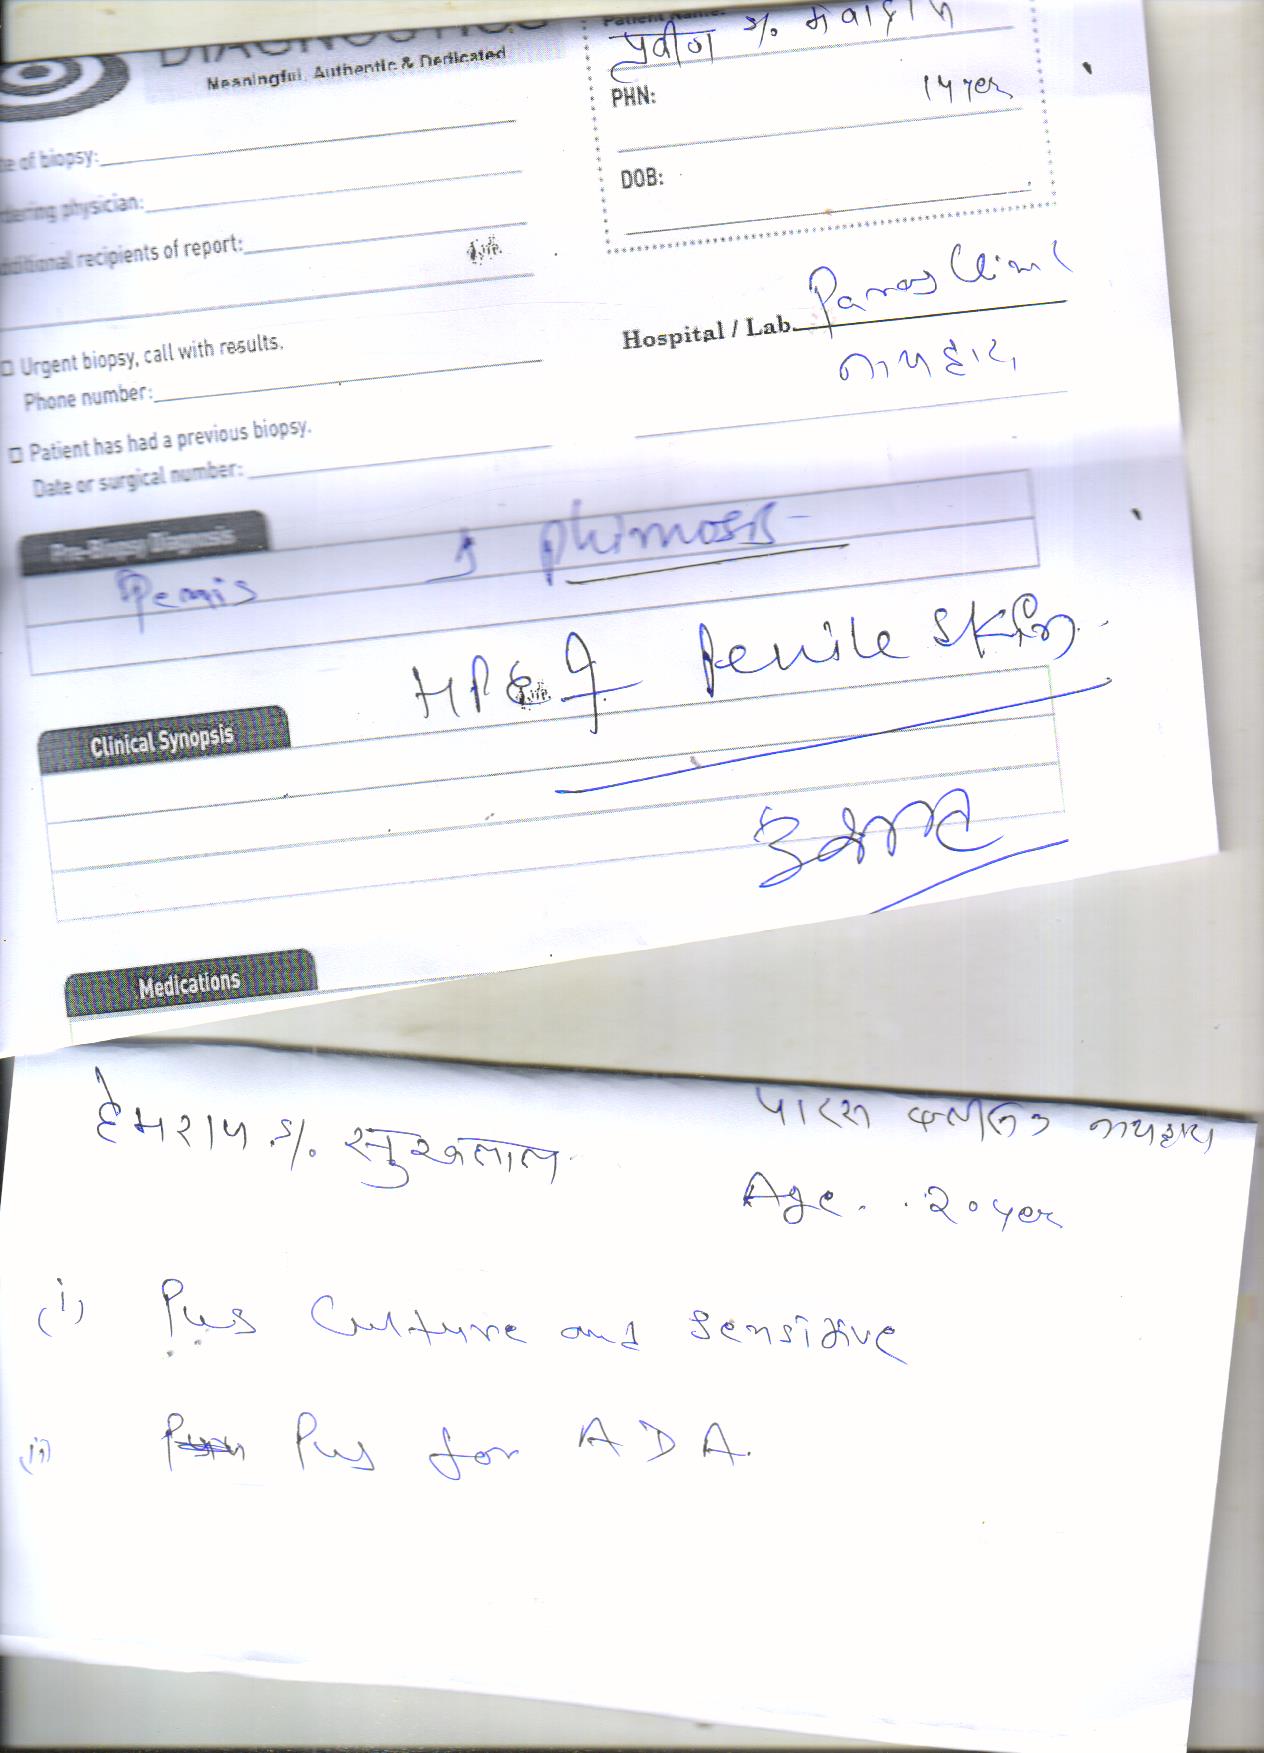 DIAGNOSTICS
Meaningful, Authentic & Dedicated
Patient Name:
प्रवीण S/o.
PHN:
14 yer
of biopsy:
dering physician:
DOB:
dditional recipients of report:
Hospital / Lab. Paras Clinic
Urgent biopsy, call with results.
Phone number:
Patient has had a previous biopsy.
Date or surgical number:
Pre-Biopsy Diagnosis
Penis phimosis
HPE of Penile skin
Clinical Synopsis
Medications
हेमराज S/o. सुखलाल
पारस क्लीनिक
Age. 20 yer
(i) Pus Culture and sensitive
(ii) Pus for ADA.